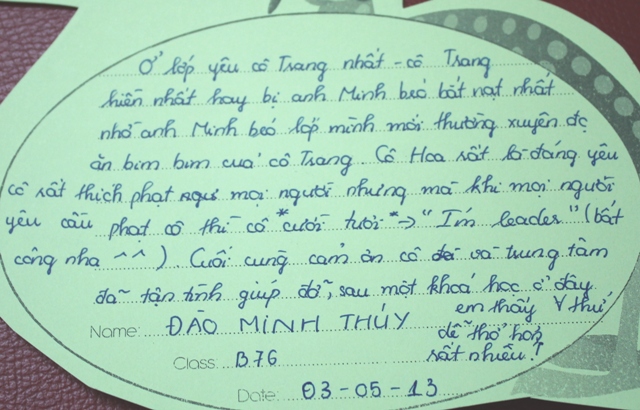 Ở lớp yêu cô Trang nhất - cô Trang
hiền nhất hay bị anh Minh béo bắt nạt nhất
nhờ anh Minh béo lớp mình mới thường xuyên đc
ăn bim bim của cô Trang. Cô Hoa rất là đáng yêu
cô rất thích phạt mọi người nhưng mà khi mọi người
yêu cầu phạt cô thì cô *cười tươi* -> "I'm leader" (bất
công nha ^^). Cuối cùng cảm ơn cô và trung tâm
đã tận tình giúp đỡ, sau một khoá học ở đây
em thấy ∀ thứ
dễ thở hơn
rất nhiều!
Name: ĐÀO MINH THÚY
Class: B76
Date: 03-05-13